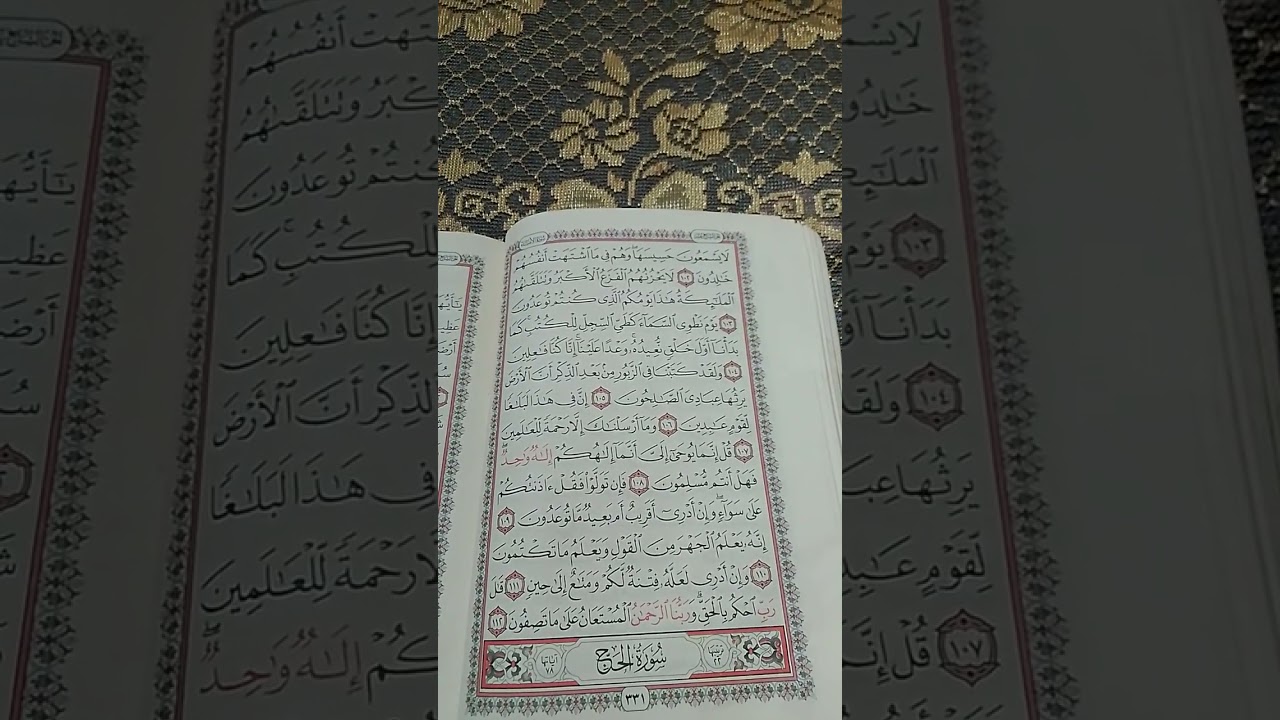 لَا يَسْمَعُونَ حَسِيسَهَا وَهُمْ فِي مَا اشْتَهَتْ أَنفُسُهُمْ
خَٰلِدُونَ ١٠٢ لَا يَحْزُنُهُمُ الْفَزَعُ الْأَكْبَرُ وَتَتَلَقَّىٰهُمُ
الْمَلَٰٓئِكَةُ هَٰذَا يَوْمُكُمُ الَّذِي كُنتُمْ تُوعَدُونَ
١٠٣ يَوْمَ نَطْوِي السَّمَآءَ كَطَيِّ السِّجِلِّ لِلْكُتُبِ كَمَا
بَدَأْنَآ أَوَّلَ خَلْقٍ نُّعِيدُهُۥ وَعْدًا عَلَيْنَآ إِنَّا كُنَّا فَٰعِلِينَ
١٠٤ وَلَقَدْ كَتَبْنَا فِي الزَّبُورِ مِنۢ بَعْدِ الذِّكْرِ أَنَّ الْأَرْضَ
يَرِثُهَا عِبَادِيَ الصَّٰلِحُونَ ١٠٥ إِنَّ فِي هَٰذَا لَبَلَٰغًا
لِّقَوْمٍ عَٰبِدِينَ ١٠٦ وَمَآ أَرْسَلْنَٰكَ إِلَّا رَحْمَةً لِّلْعَٰلَمِينَ
١٠٧ قُلْ إِنَّمَا يُوحَىٰٓ إِلَيَّ أَنَّمَآ إِلَٰهُكُمْ إِلَٰهٌ وَٰحِدٌ
فَهَلْ أَنتُم مُّسْلِمُونَ ١٠٨ فَإِن تَوَلَّوْا فَقُلْ ءَاذَنتُكُمْ
عَلَىٰ سَوَآءٍ وَإِنْ أَدْرِيٓ أَقَرِيبٌ أَم بَعِيدٌ مَّا تُوعَدُونَ ١٠٩
إِنَّهُۥ يَعْلَمُ الْجَهْرَ مِنَ الْقَوْلِ وَيَعْلَمُ مَا تَكْتُمُونَ
١١٠ وَإِنْ أَدْرِي لَعَلَّهُۥ فِتْنَةٌ لَّكُمْ وَمَتَٰعٌ إِلَىٰ حِينٍ ١١١ قَٰلَ
رَبِّ احْكُم بِالْحَقِّ وَرَبُّنَا الرَّحْمَٰنُ الْمُسْتَعَانُ عَلَىٰ مَا تَصِفُونَ ١١٢
سُورَةُ الْحَجِّ
آياتها ٧٨
٣٣١